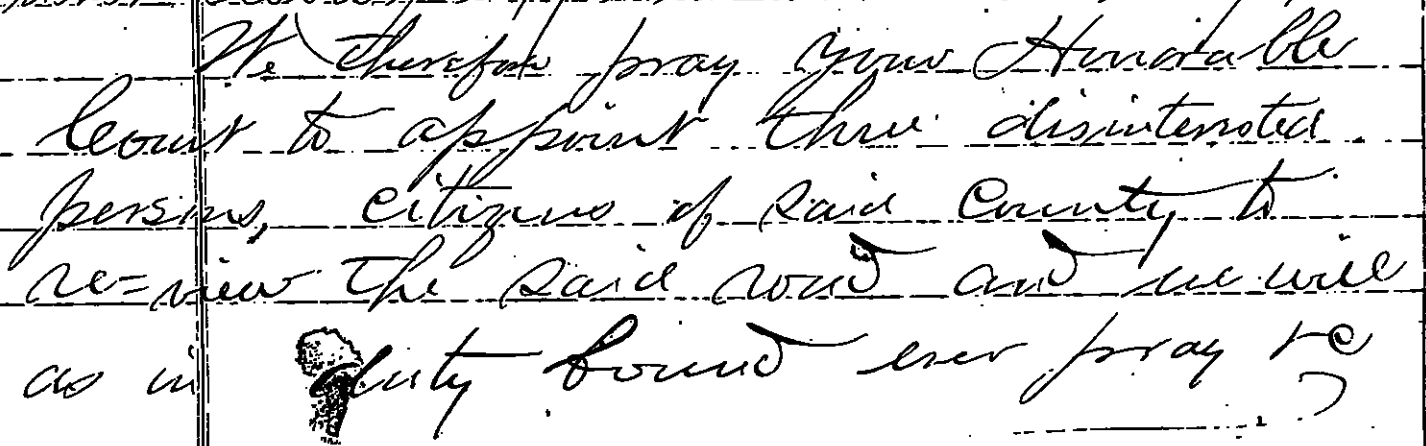 We therefore pray your Honorable
Court to appoint three disinterested
persons, citizens of said County to
re=view the said road and we will
as in duty bound ever pray &c